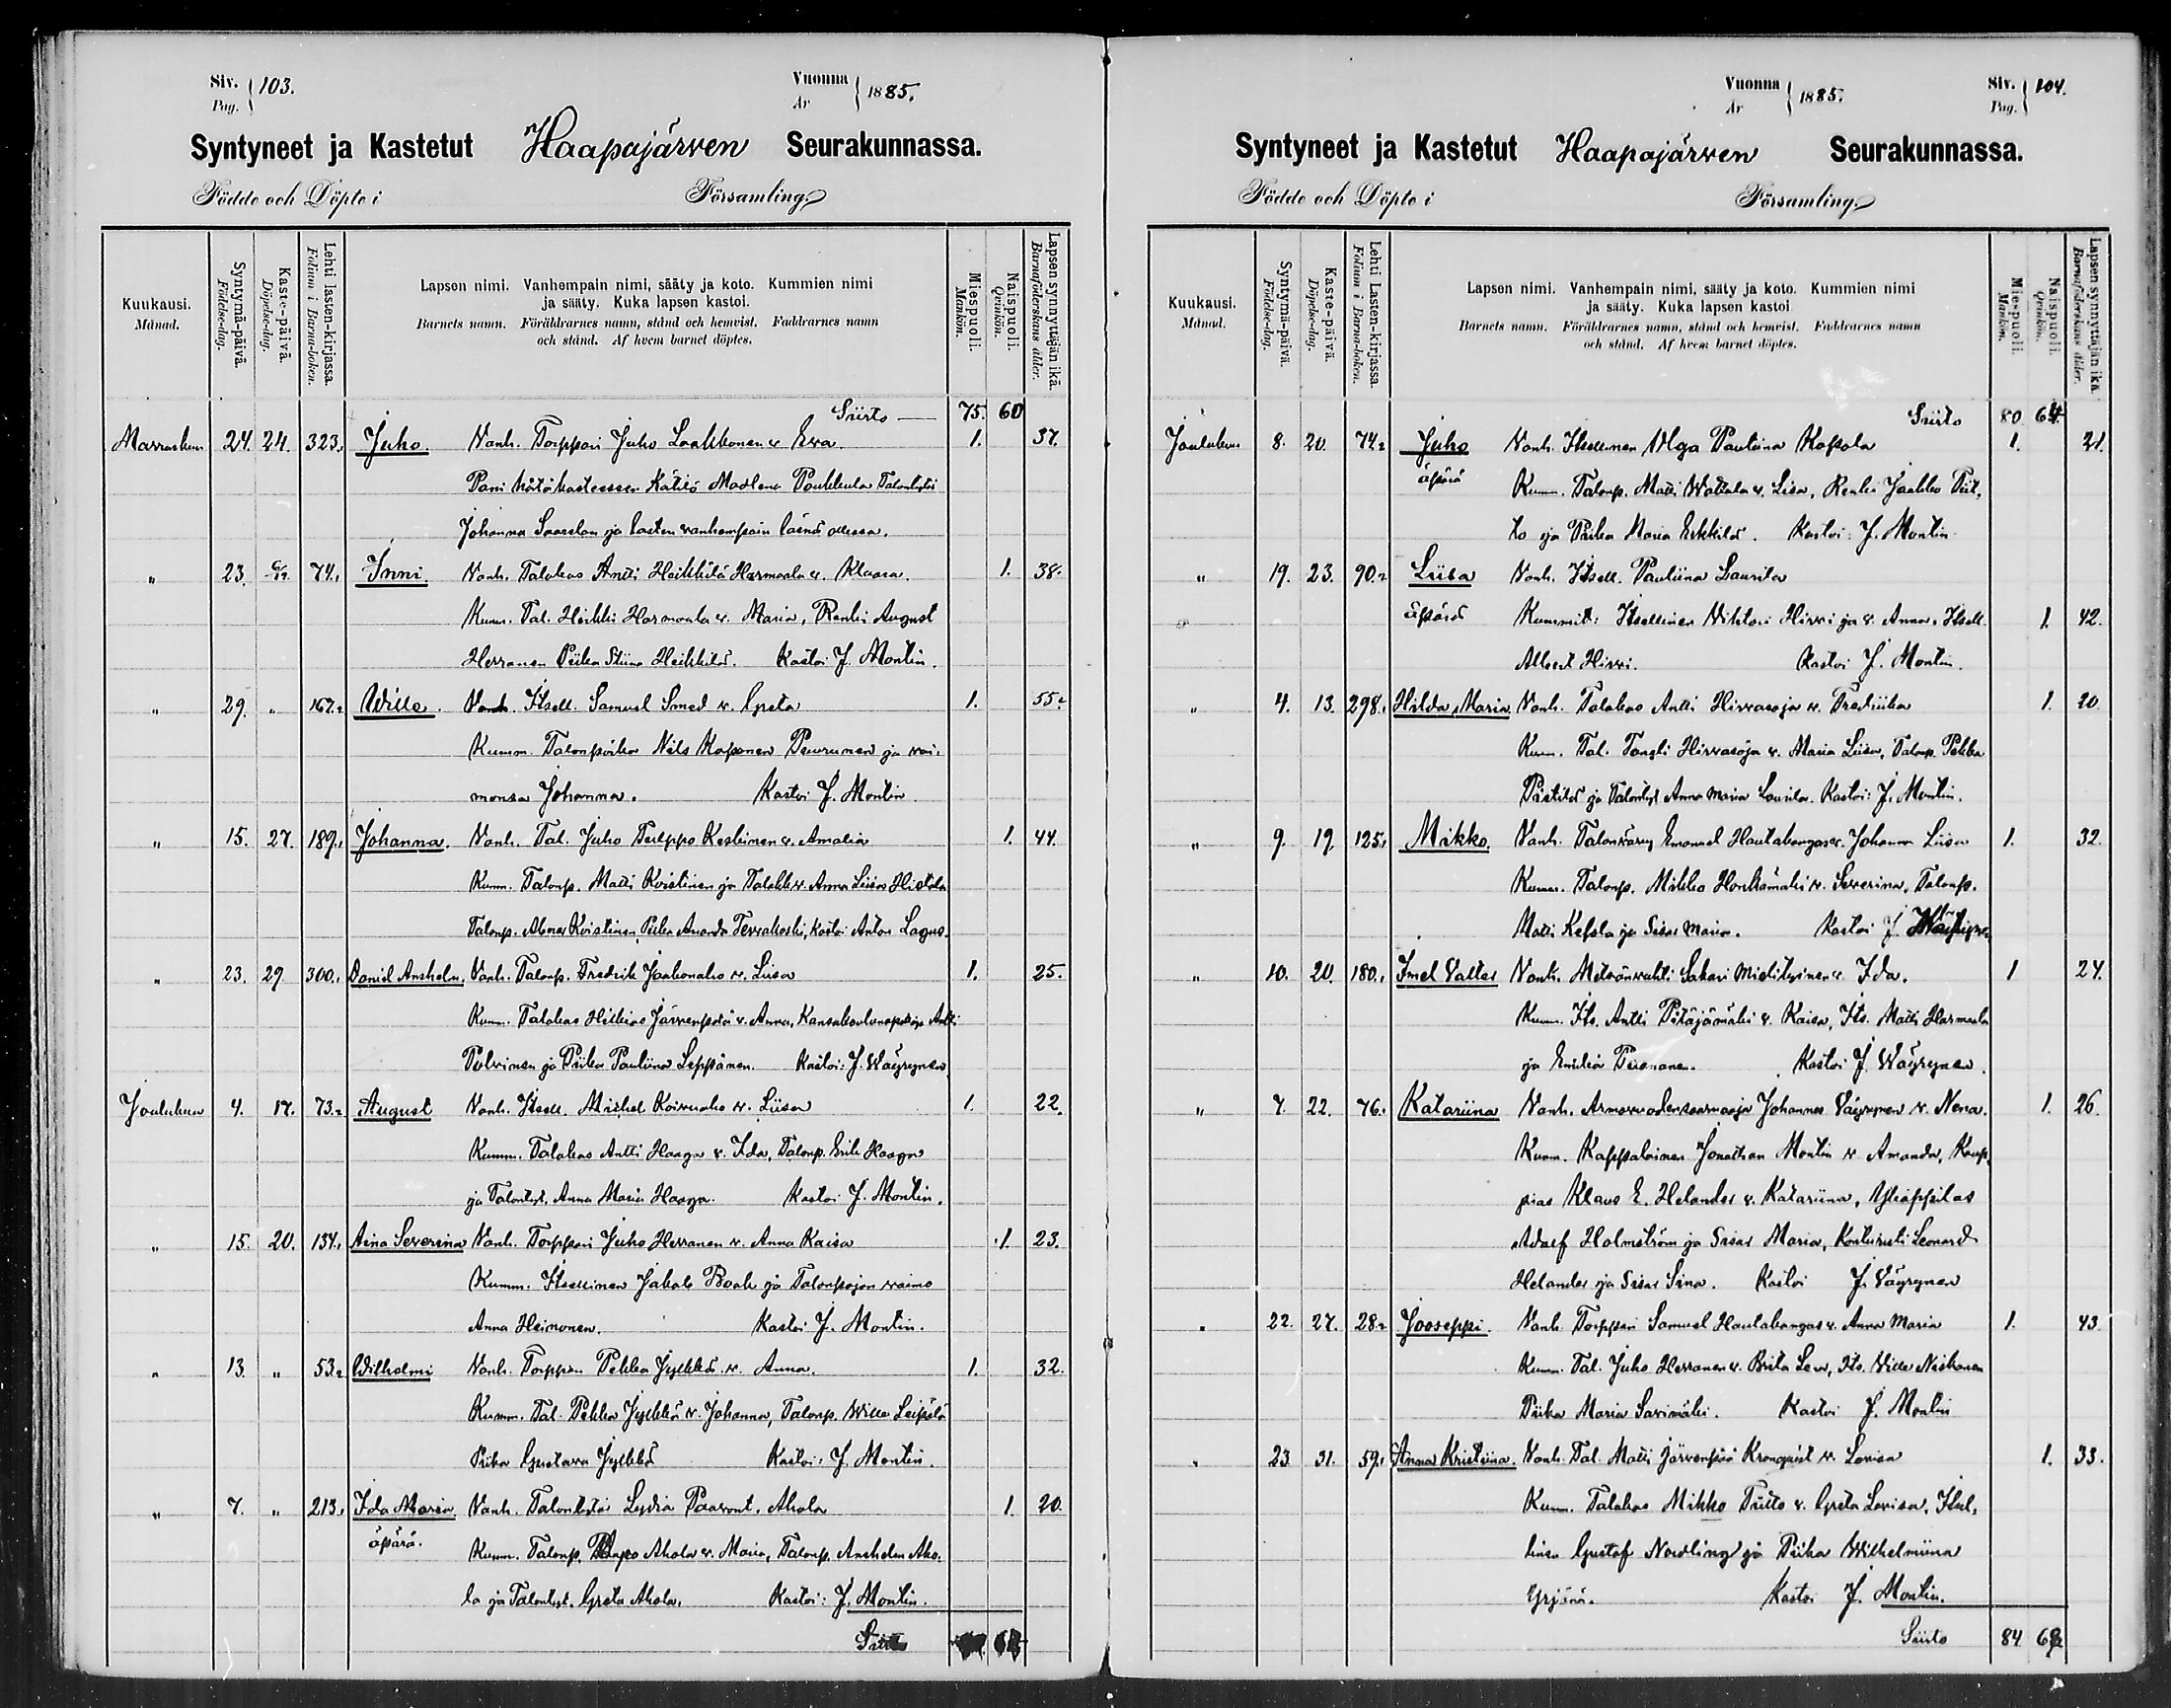 Siv. 103.
Pag.
Vuonna 1885.
Ar
Syntyneet ja Kastetut Haapajärven Seurakunnassa.
Födde och Döpte i Församling.
Kuukausi. Månad.
Syntymä-päivä. Födelse-dag.
Kaste-päivä. Döpelse-dag.
Lehti lasten-kirjassa. Folium i Barna-boken.
Lapsen nimi. Vanhempain nimi, sääty ja koto. Kummien nimi
ja sääty. Kuka lapsen kastoi.
Barnets namn. Föräldrarnes namn, stånd och hemvist. Faddrarnes namn
och stånd. Af hvem barnet döptes.
Miespuoli. Mankön.
Naispuoli. Qvinkön.
Lapsen synnyttäjän ikä. Barnaföderskans ålder.
Siirto — 75. 60
Marraskuu 24. 24. 323. Juho. Vanh. Torppari Juho Laakkonen v. Eva. 1. 37.
Pani hätäkasteeseen Kätilö Madlena Poukkula Talontytär
Johanna Saarelan ja lasten vanhempain läsnä ollessa.
" 23. 6/12 74. Inni. Vanh. Talokas Antti Heikkilä Harmaala v. Klaara. 1. 38.
Kumm. Tal. Heikki Harmaala v. Maria, Renki August
Herranen Piika Stiina Heikkilä. Kastoi J. Montin.
" 29. " 167. Wille. Vanh. Itsell. Samuel Smed v. Greta 1. 55.
Kumm. Talonpoika Nils Kaponen Peurunen ja vai-
monsa Johanna. Kastoi J. Montin.
" 15. 27. 189. Johanna. Vanh. Tal. Juho Teilppo Keskinen v. Amalia 1. 44.
Kumm. Talonp. Matti Koistinen ja Anna Liisa Hietala
Talonp. Abner Koistinen, Piika Amanda Tervakoski, Kastoi Anton Lagus.
" 23. 29. 300. Daniel Anshelm. Vanh. Talonp. Fredrik Jaakonaho v. Liisa 1. 25.
Kumm. Talokas Hiskias Järvenpää v. Anna, Antti
Pulvinen ja Piika Pauliina Leppänen. Kastoi: J. Wäyrynen.
Joulukuu 4. 17. 73. August Vanh. Itsell. Michel Koivuaho v. Liisa 1. 22.
Kumm. Talokas Antti Haaga v. Ida, Talonp. Erik Haaga
ja Talontyt. Anna Maria Haaga. Kastoi J. Montin.
" 15. 20. 134. Aina Severina Vanh. Torppari Juho Herranen v. Anna Kaisa 1. 23.
Kumm. Itsellinen Jakob Raak ja Talonpojan vaimo
Anna Heinonen. Kastoi J. Montin.
" 13. " 53. Wilhelmi Vanh. Torppari Pekka Jylkkä v. Anna. 1. 32.
Kumm. Tal. Pekka Jylkkä v. Johanna, Talonp. Wille Leipälä
Piika Gustava Jylkkä Kastoi: J. Montin.
" 7. " 213. Ida Maria. Vanh. Talontytär Lydia Paavont. Ahola 1. 20.
äpärä. Kumm. Talonp. Ahola v. Maria, Talonp. Anshelm Aho-
la ja Talontyt. Greta Ahola. Kastoi: J. Montin.
Siirto
Vuonna 1885.
Ar
Siv. 104.
Pag.
Syntyneet ja Kastetut Haapajärven Seurakunnassa.
Födde och Döpte i Församling.
Kuukausi. Månad.
Syntymä-päivä. Födelse-dag.
Kaste-päivä. Döpelse-dag.
Lehti Lasten-kirjassa. Folium i Barna-boken.
Lapsen nimi. Vanhempain nimi, sääty ja koto. Kummien nimi
ja sääty. Kuka lapsen kastoi
Barnets namn. Föräldrarnes namn, stånd och hemvist. Faddrarnes namn
och stånd. Af hvem barnet döptes.
Miespuoli. Mankön.
Naispuoli. Qvinkön.
Lapsen synnyttäjän ikä. Barnaföderskans ålder.
Siirto 80. 64.
Joulukuu 8. 20. 74. Juho Vanh. Itsellinen Olga Pauliina Kapola 1. 21.
äpärä Kumm. Talonp. Matti Wattala v. Lisa, Renki Jaakko Piit-
to ja Piika Maria Erkkilä. Kastoi: J. Montin
" 19. 23. 90. Liisa Vanh. Itsell. Pauliina Laurila
äpärä Kummit: Itsellinen Wihtori Hirvi ja v. Anna, Itsell. 1. 42.
Albert Hirvi. Kastoi J. Montin.
" 4. 13. 298. Hilda Maria Vanh. Talokas Antti Hirvasoja v. Frediika 1. 20
Kumm. Tal. Hirvasoja v. Maria Liisa, Talonp. Pekka
ja Talontyt. Anna Maria Laurila. Kastoi: J. Montin.
" 9. 19 125. Mikko. Vanh. Talonvävy Emanuel Hautakangas v. Johanna Liisa 1. 32.
Kumm. Talonp. Mikko Honkamäki v. Severina, Talonp.
Matti Kefola ja Sisar Maria. Kastoi J. Wäyrynen
" 10. 20. 180. Imel Valter Vanh. Metsänvahti Sakari Mielityinen v. Ida. 1 24.
Kumm. Its. Antti Pitäjämäki v. Kaisa, Its. Matti Harmaala
ja Emilia Piironen. Kastoi J. Wäyrynen.
" 7. 22. 76. Katariina Vanh. Armovuodensaarnaaja Johannes Väyrynen v. Nena. 1. 26.
Kumm. Kappalainen Jonathan Montin v. Amanda, Kaup-
pias Klaus E. Helander v. Katariina, Ylioppilas
Adolf Holmström ja Sisar Maria, Konturisti Leonard
Helander ja Sisar Sina. Kastoi J. Väyrynen
" 22. 27. 28. Jooseppi. Vanh Torppari Samuel Hautakangas v. Anna Maria 1. 43
Kumm. Tal. Juho Herranen v. Brita Leena, Its. Wille Niskanen
Piika Maria Savimäki. Kastoi J. Montin
" 23. 31. 59. Anna Kristiina. Vanh. Tal. Matti Järvenpää Kronqvist v. Lovisa 1. 33.
Kumm. Talokas Mikko Tiitto v. Greta Lovisa, Itsel-
linen Gustaf Nordling ja Piika Wilhelmiina
Yrjänä. Kastoi J. Montin.
Siirto 84